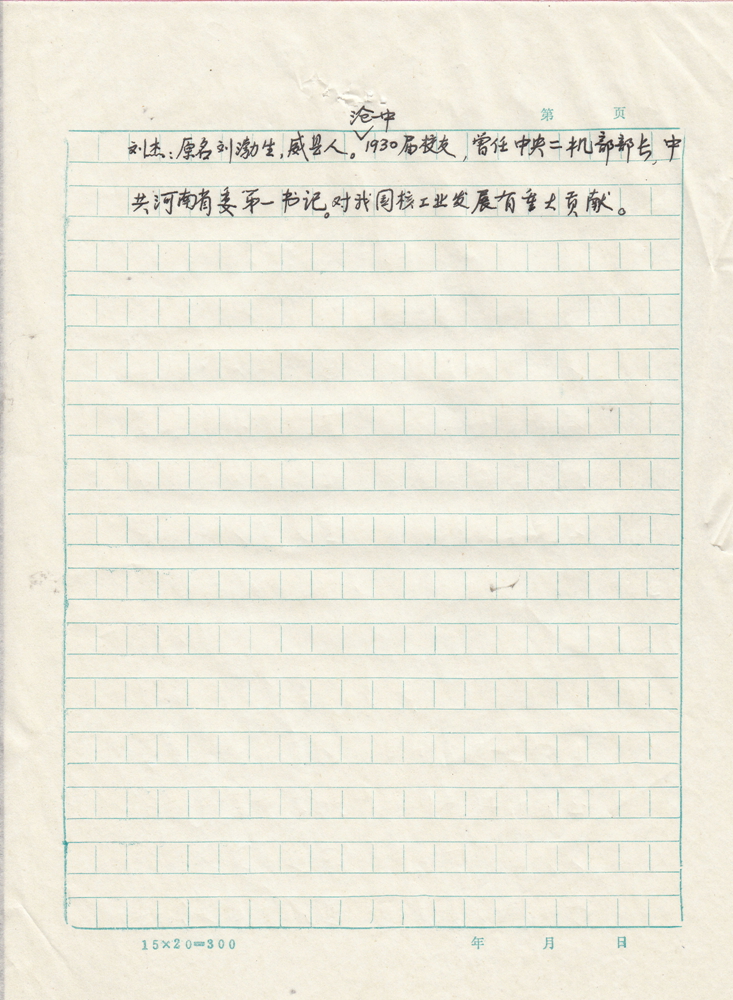 第 页
沧一中
刘杰：原名刘渤生，威县人。1930届校友，曾任中央二机部部长，中
共河南省委第一书记。对我国核工业发展有重大贡献。
15×20=300 年 月 日